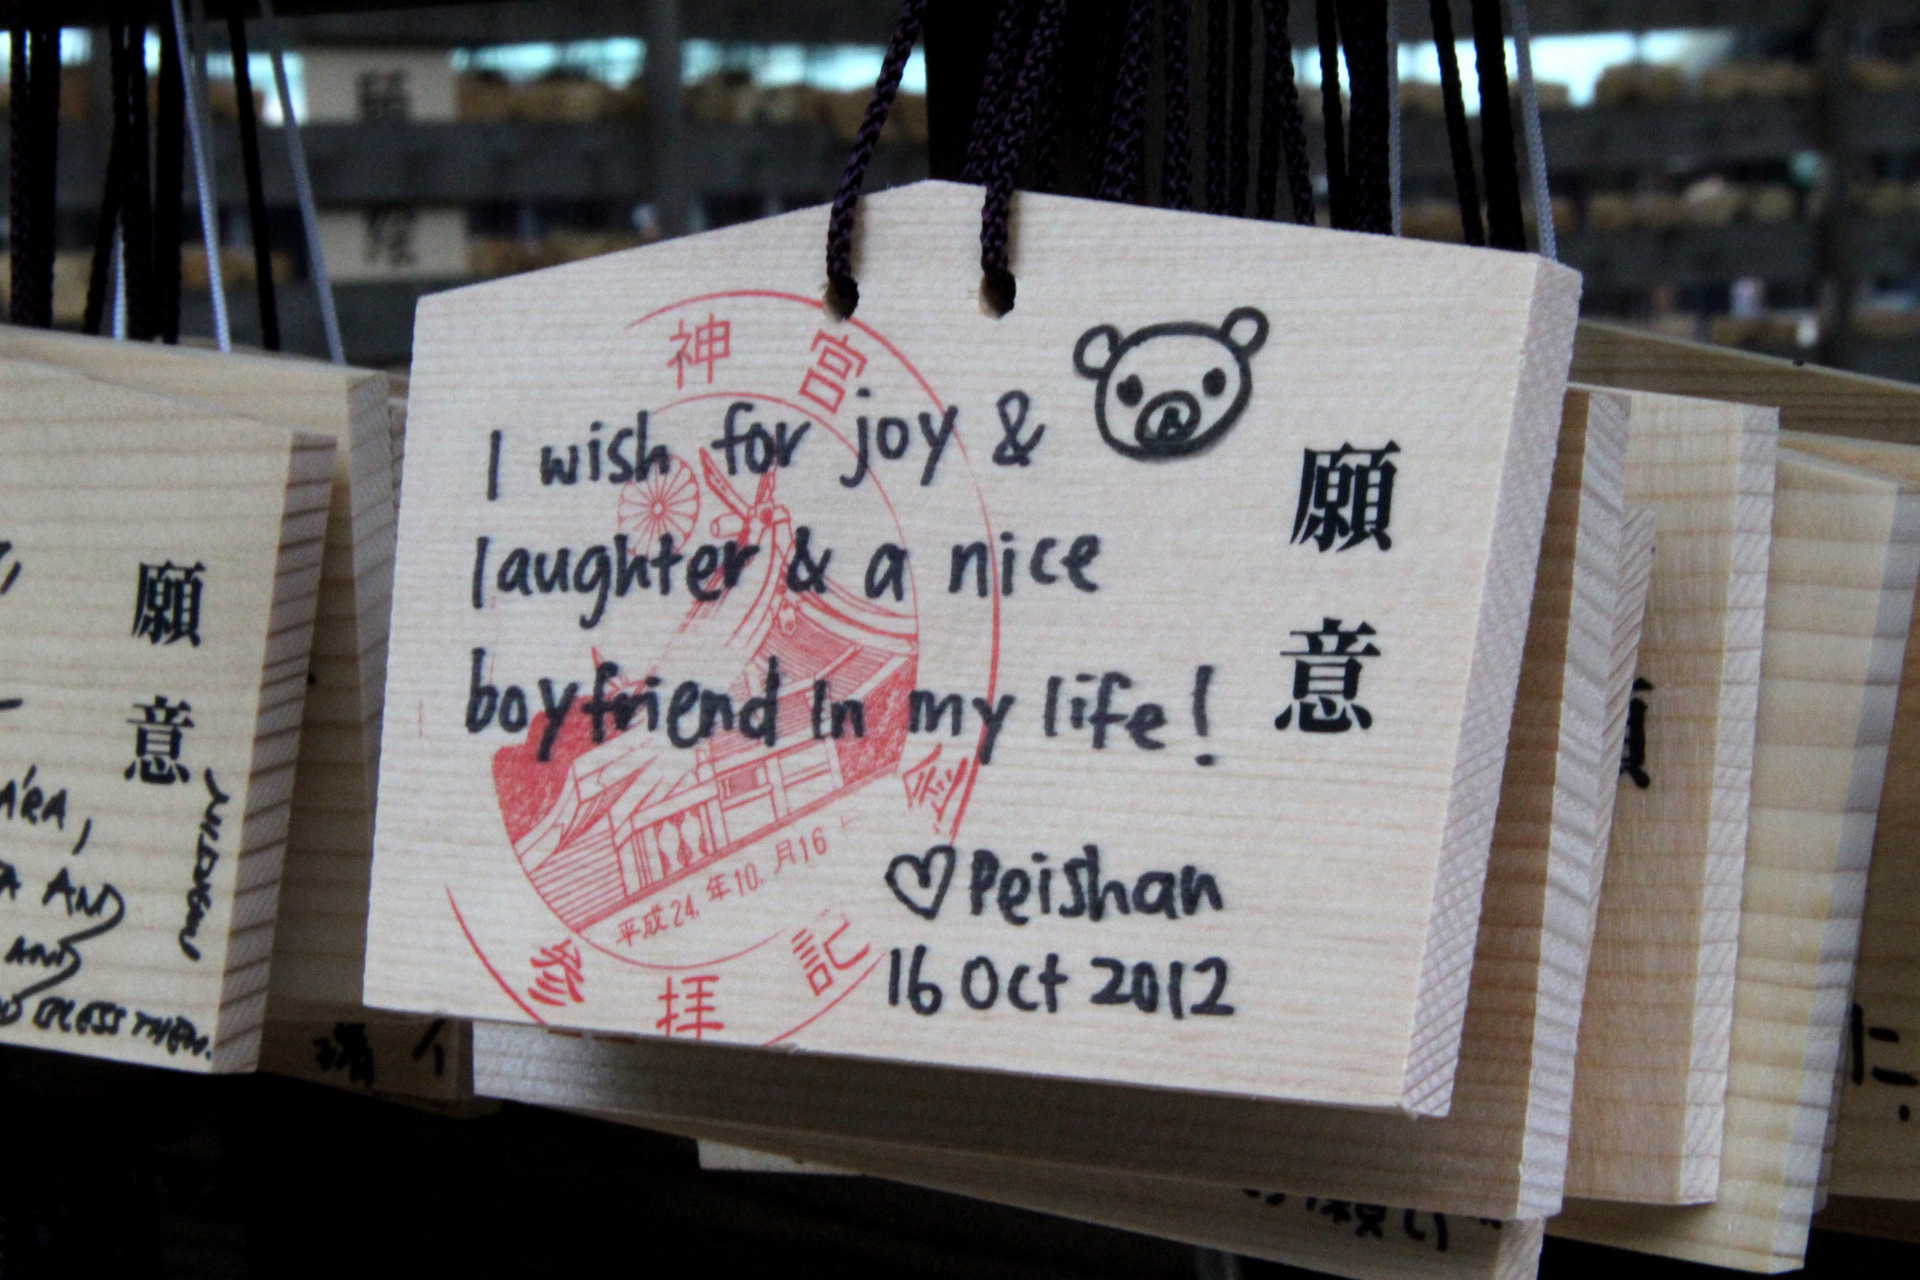 神宮
I wish for joy &
laughter & a nice
boyfriend in my life!
願意
平成24.年10.月16
参拝記念
♡ Peishan
16 Oct 2012
願意
AND
AND
BLESS THEM.